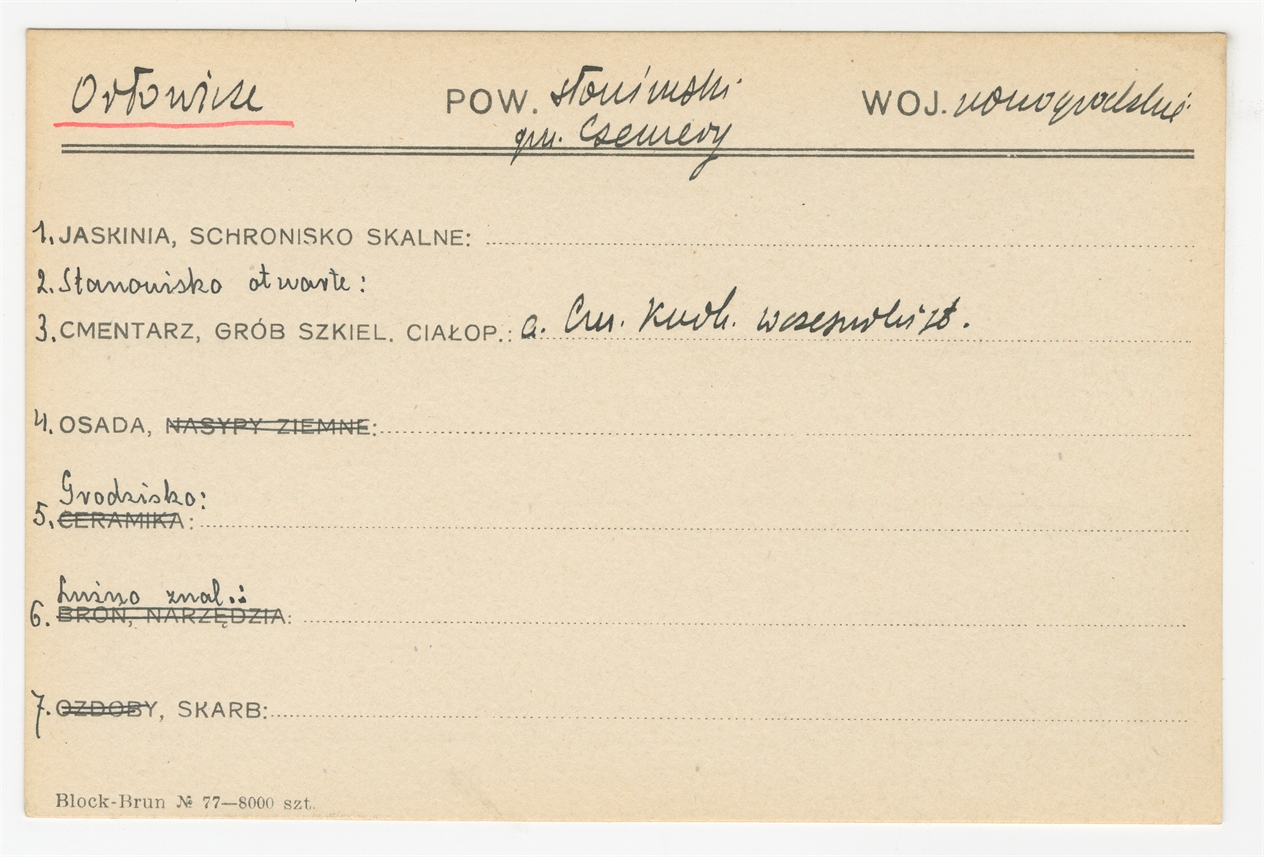 Orłowicze POW. słonimski WOJ. nowogródzkie
gm. Czemery
1. JASKINIA, SCHRONISKO SKALNE:
2. Stanowisko otwarte:
3. CMENTARZ, GRÓB SZKIEL. CIAŁOP.: a. Cm. Kurh. wczesnohist.
4. OSADA, NASYPY ZIEMNE:
Grodzisko:
5. CERAMIKA:
Luźno znal.:
6. BROŃ, NARZĘDZIA:
7. OZDOBY, SKARB:
Block-Brun № 77—8000 szt.